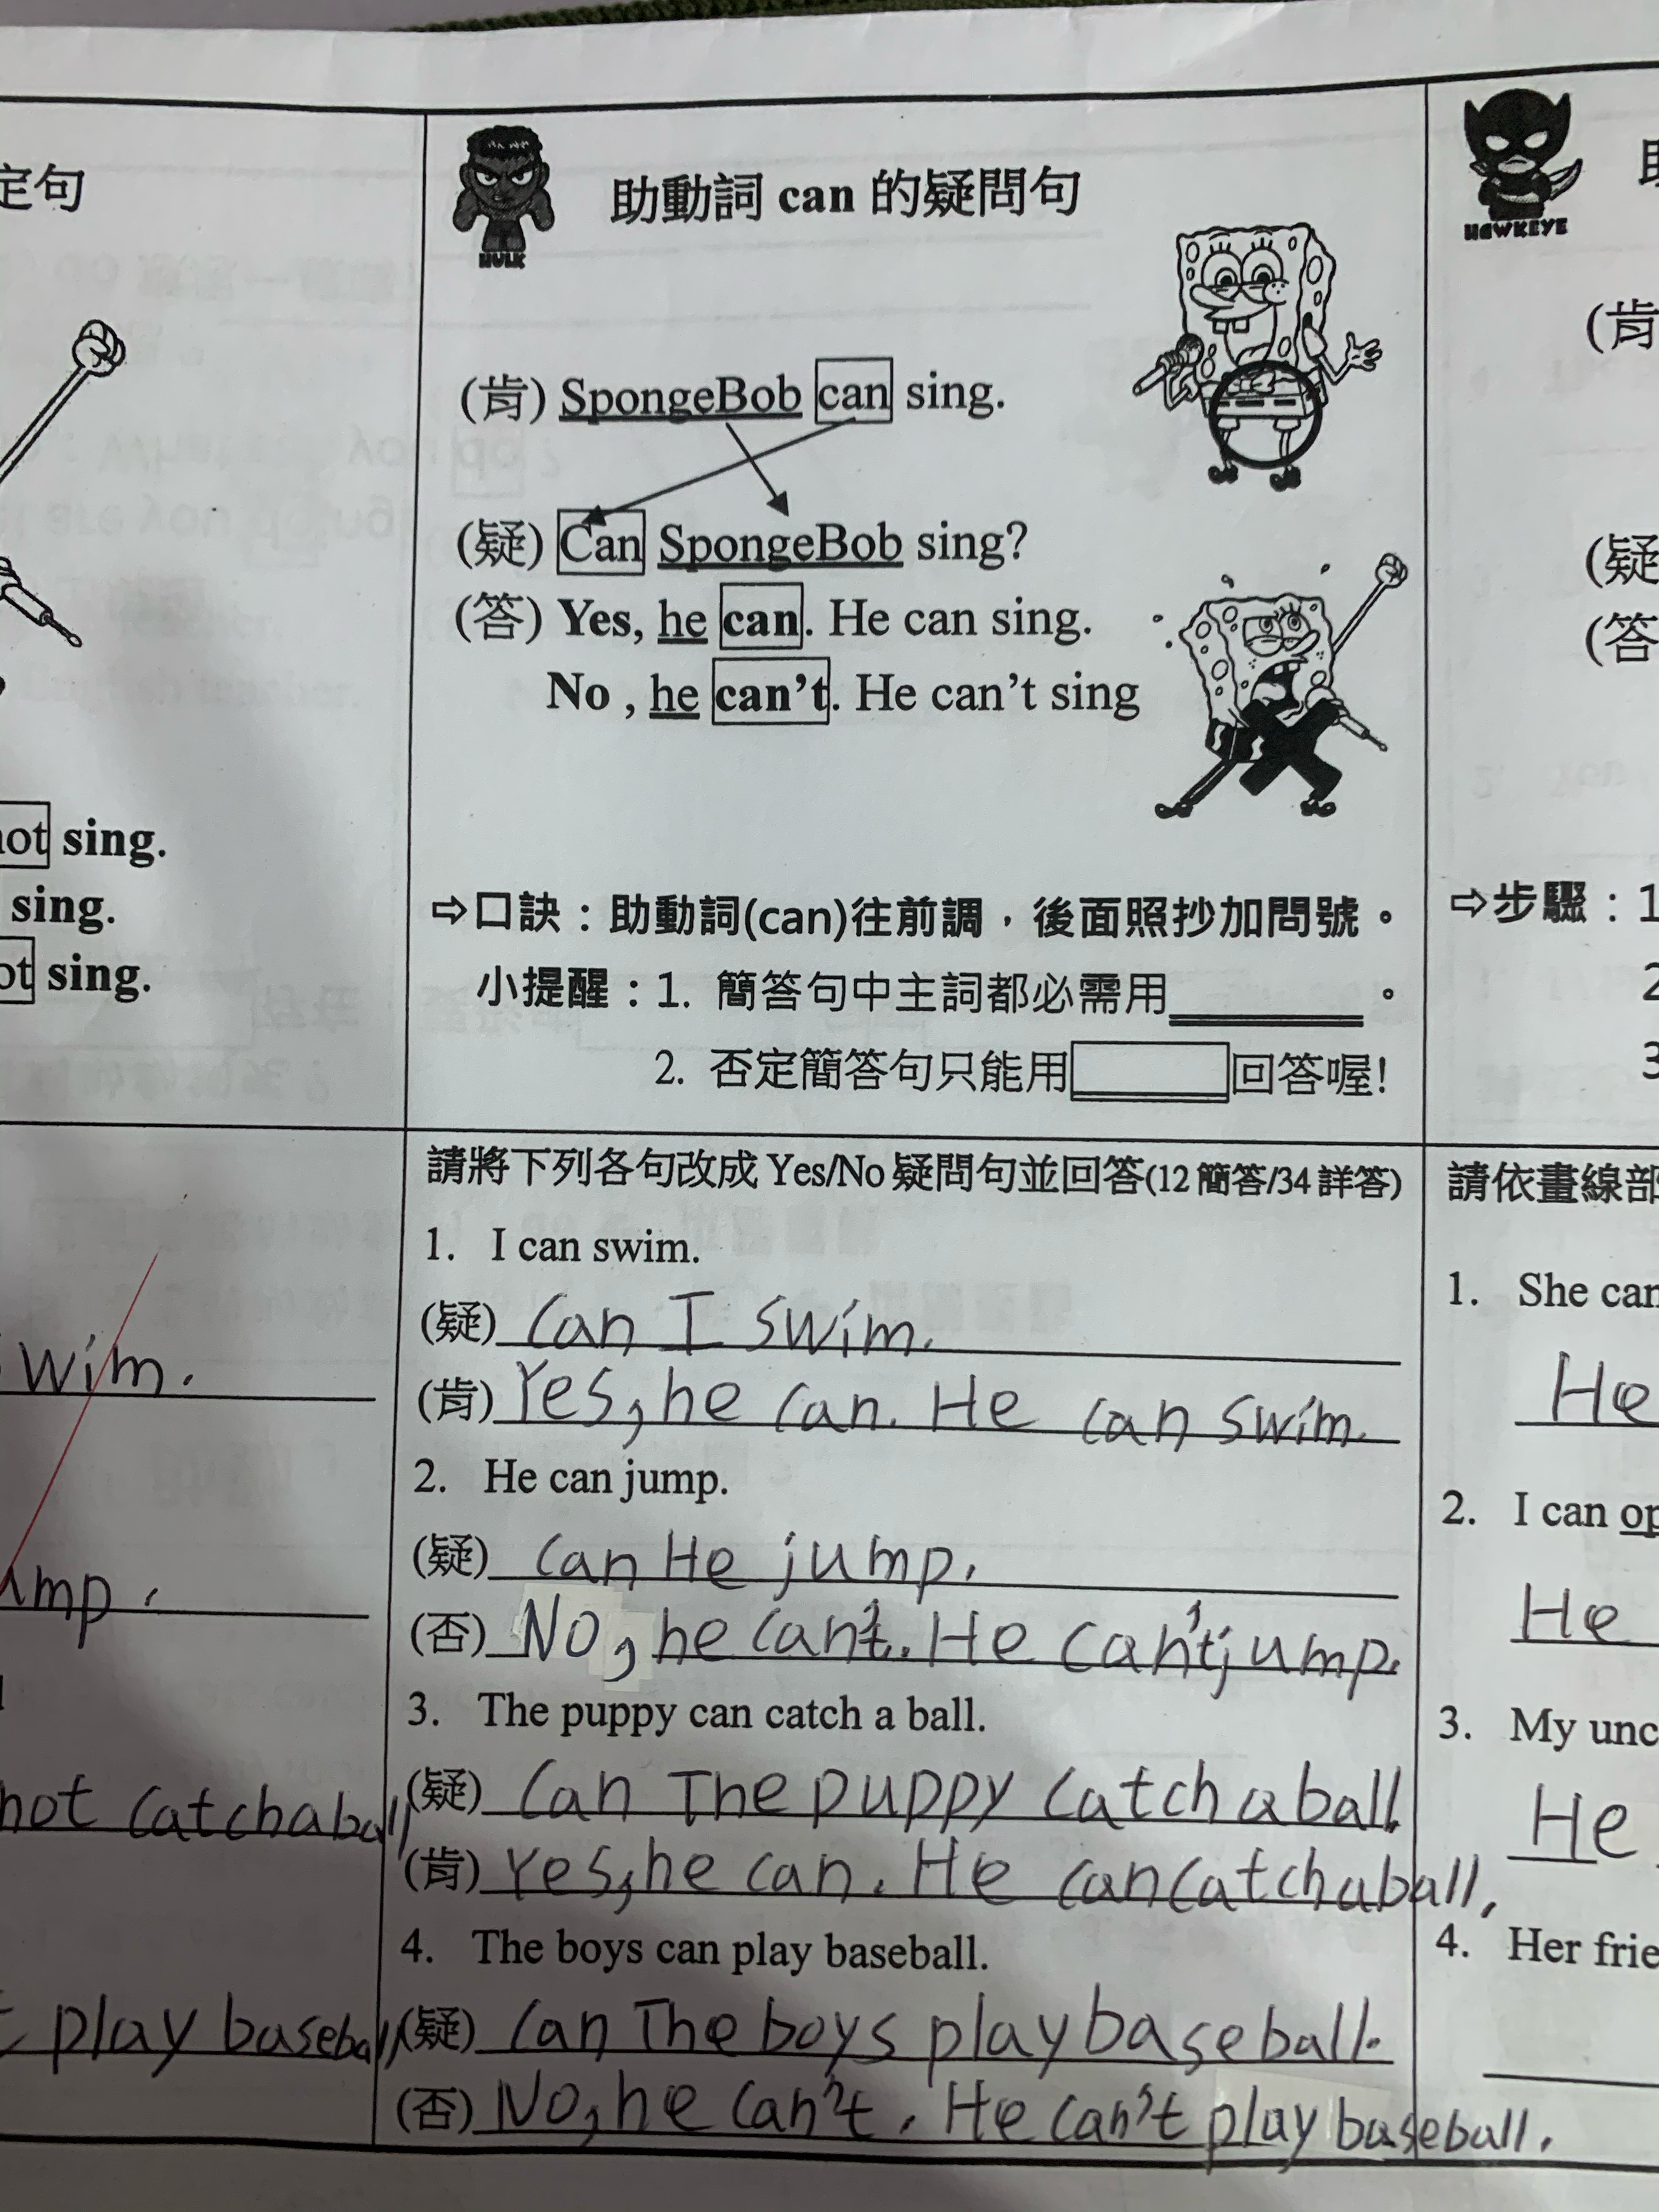 定句
助動詞 can 的疑問句
HULK
HAWKEYE
(肯) SpongeBob can sing.
(疑) Can SpongeBob sing?
(答) Yes, he can. He can sing.
No , he can't. He can't sing
not sing.
sing.
ot sing.
⇨口訣：助動詞(can)往前調，後面照抄加問號。
小提醒：1. 簡答句中主詞都必需用________。
2. 否定簡答句只能用 回答喔!
(肯
(疑
(答
⇨步驟：1
2
3
swim.
ump.
not catch a ball,
play baseball,
請將下列各句改成 Yes/No 疑問句並回答(12 簡答/34 詳答)
1. I can swim.
(疑) can I swim.
(肯) Yes, he can. He can swim.
2. He can jump.
(疑) can He jump.
(否) No, he can't. He can't jump.
3. The puppy can catch a ball.
(疑) Can The puppy catch a ball.
(肯) Yes, he can. He can catch a ball,
4. The boys can play baseball.
(疑) Can The boys play baseball.
(否) No, he can't. He can't play baseball.
請依畫線部
1. She can
He
2. I can op
He
3. My unc
He
4. Her frie